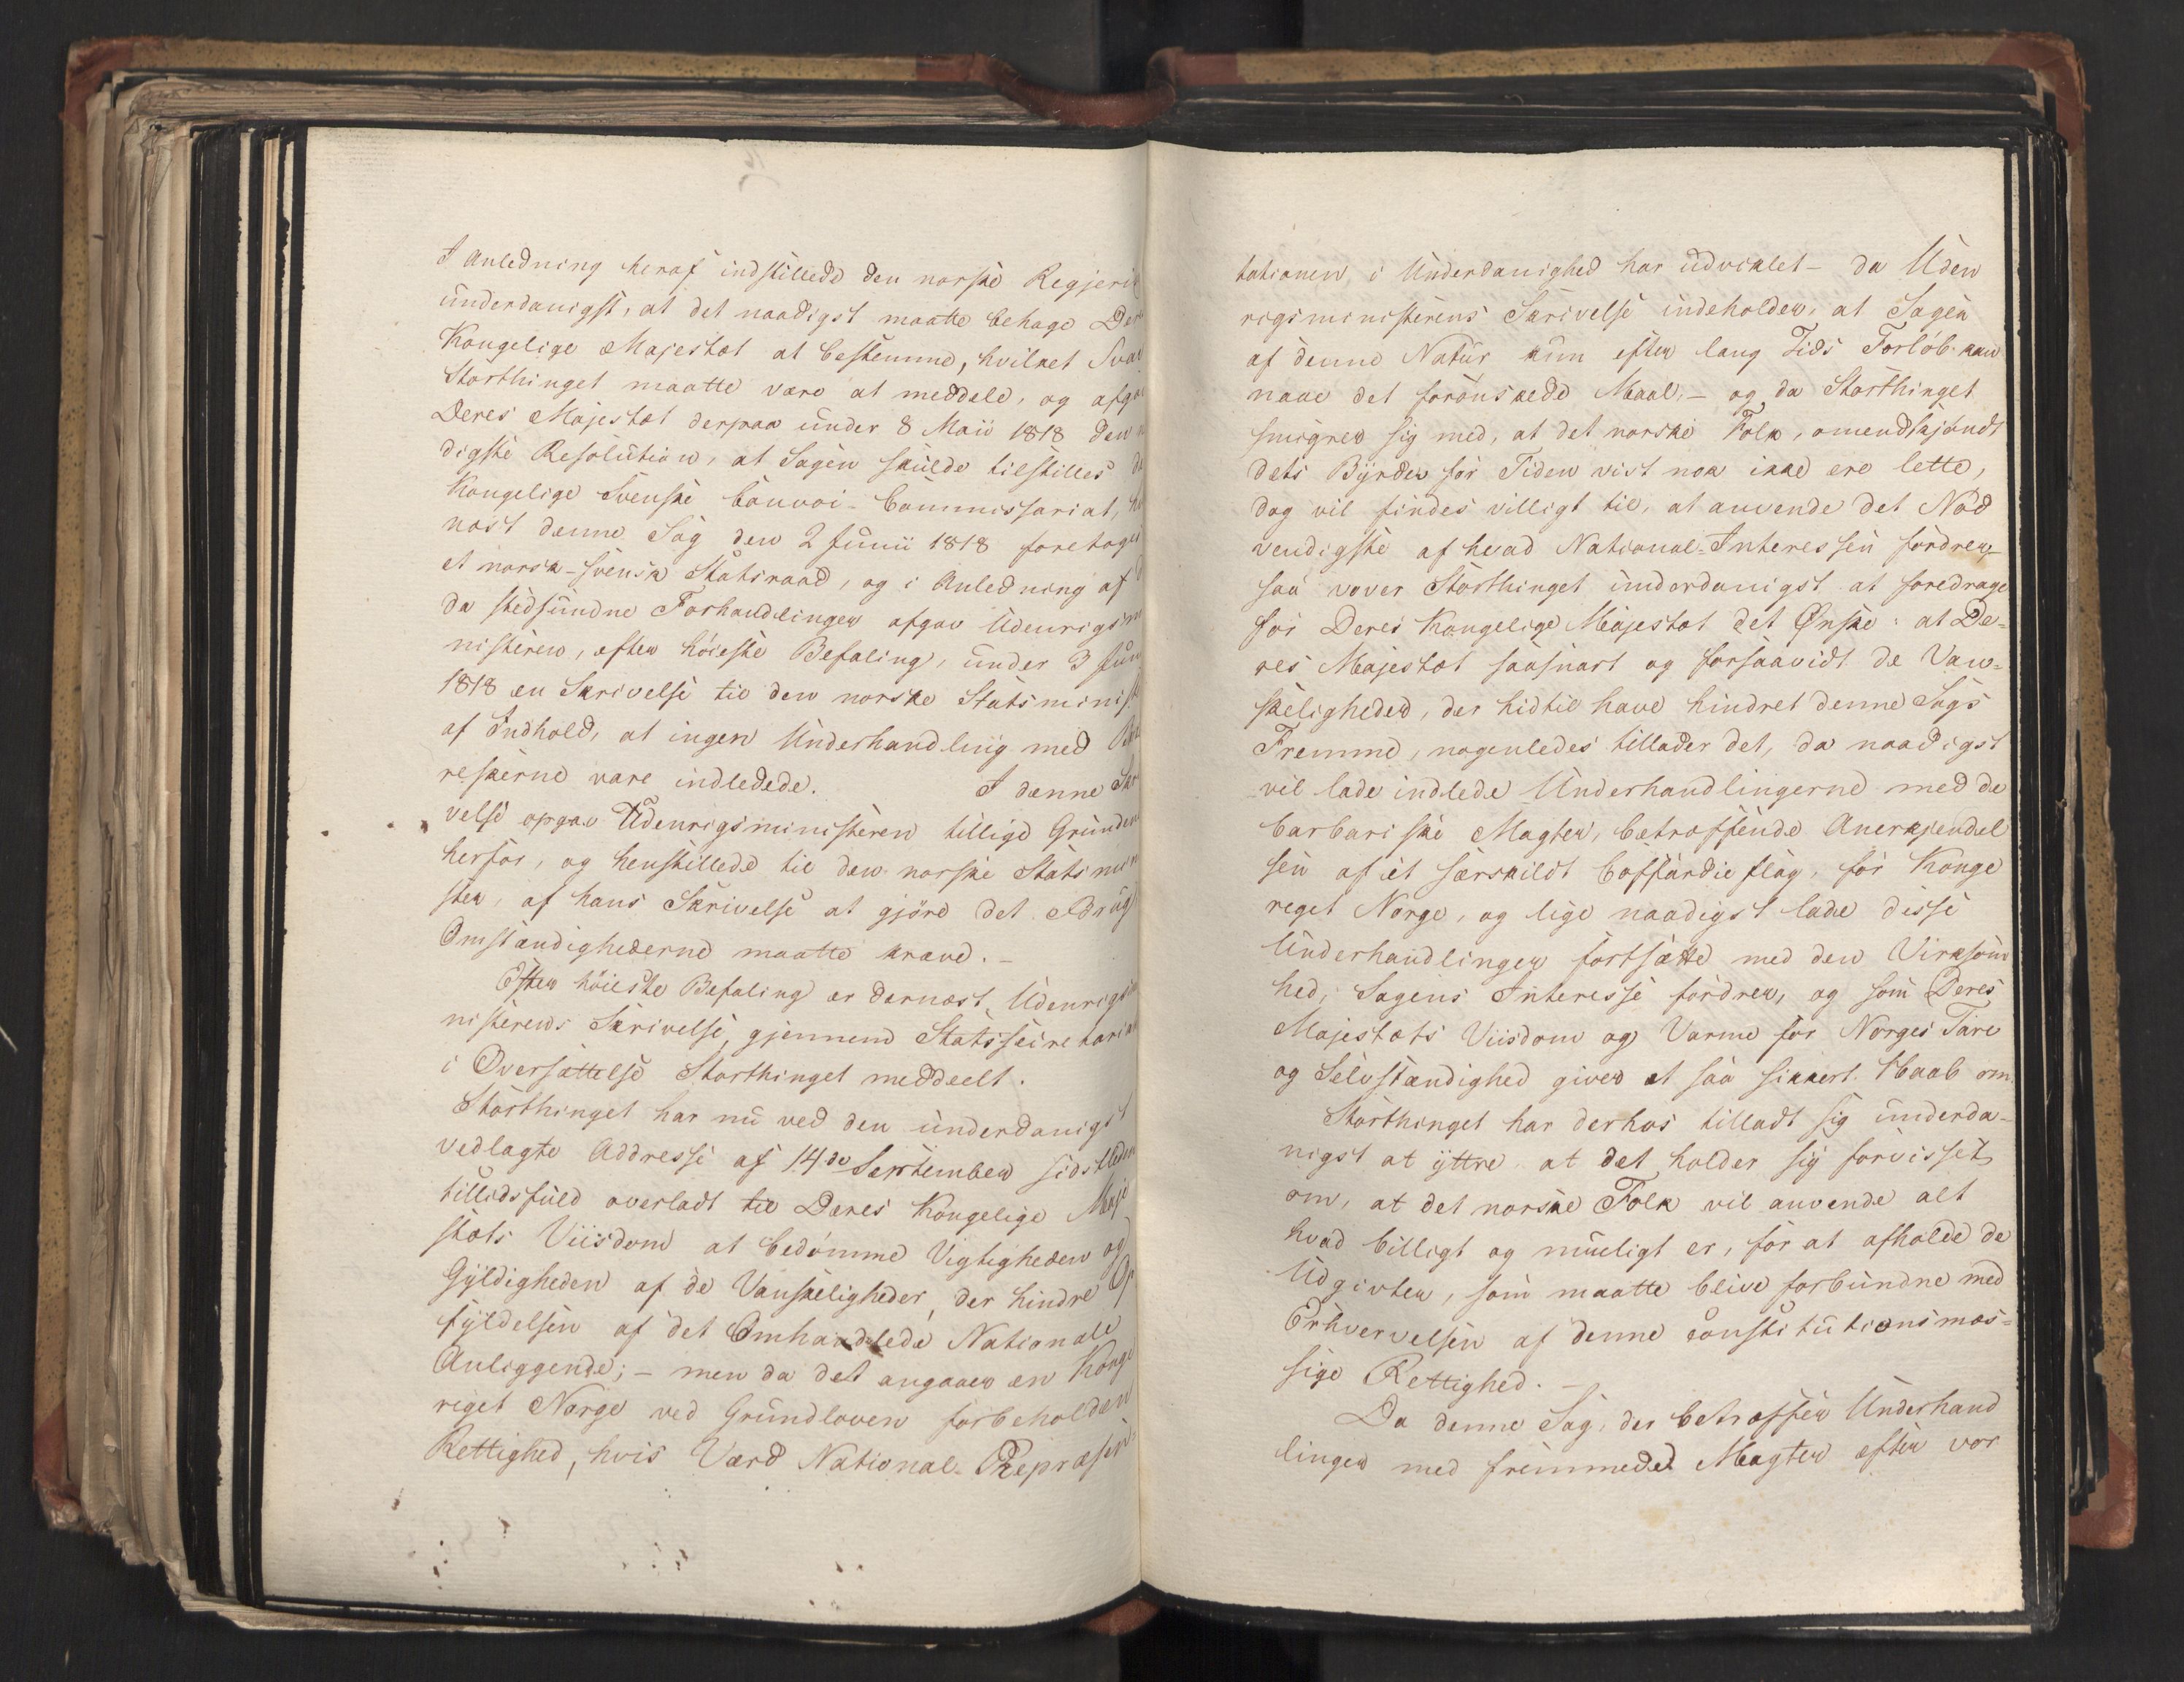 I Anledning heraf indstillede den norske Regjeri
underdanigst, at det naadigst maatte behage Der
Kongelige Majestæt at bestemme, hvilket Svar
Storthinget maatte være at meddele, og afga
Deres Majestæt derpaa under 8 Maii 1818 den n
digste Resolution, at Sagen skulde tilstilles d
Kongelige Svenske Convoi-Commissariat, h
næst denne Sag den 2 Junii 1818 foretoges
et norsk-svensk Statsraad, og i Anledning af
da stedfundne Forhandlinger afgav Udenrigsm
nisteren, efter höieste Befaling, under 3 Jun
1818 en Skrivelse til den norske Statsminist
af Indhold, at ingen Underhandling med
reskerne vare indledede. I denne Skr
velse opgav Udenrigsministeren tillige Grunden
herfor, og henstillede til den norske Statsmin
ster, af hans Skrivelse at gjöre det Brug
Omstændighederne maatte kræve. -
Efter höieste Befaling er dernæst Udenrigsm
nisterens Skrivelse, gjennem Statssecretariat
i Oversættelse Storthinget meddeelt.
Storthinget har nu ved den underdanigst
vedlagte Addresse af 14de September sidstleden
tillidsfuld overladt til Deres Kongelige Maje
stæts Viisdom at bedömme Vigtigheden og
Gyldigheden af de Vanskeligheder, der hindre Op
fyldelsen af det Omhandlede Nationale
Anliggende; - men da det angaaer en Konge
riget Norge ved Grundloven forbeholden
Rettighed, hvis Værd National-Repræsen-
tationen, i Underdanighed har udviklet - da Uden
rigsministerens Skrivelse indeholder, at Sagen
af denne Natur, kun efter lang Tids Forløb kan
naae det forönskede Maal, - og da Storthinget
smigrer sig med, at det norske Folk, omendskjöndt
dets Byrder for Tiden vist nok ikke ere lette,
dog vil findes villigt til, at anvende det Nöd
vendigste af hvad National-Interessen fordrer-
saa vover Storthinget underdanigst at foredrage
for Deres Kongelige Majestæt det Ønske: at De-
res Majestæt saasnart og forsaavidt de Van-
skeligheder, der hidtil have hindret denne Sags
Fremme, nogenledes tillader det, da naadigst
vil lade indlede Underhandlingerne med de
barbariske Magter, betræffende Anerkjendel
sen af et særskildt Coffardie flag, for Konge
riget Norge, og lige naadigst lade disse
Underhandlinger fortsætte med den Virksom
hed, Sagens Interesse fordrer, og som Deres
Majestæts Viisdom og Varme for Norges Tarv
og Selvstændighed giver et saa sikkert Haab om.
Storthinget har derhos tilladt sig underda-
nigst at yttre at det holder sig forvisset
om, at det norske Folk vil anvende alt
hvad billigt og mueligt er, for at afholde de
Udgivter, som maatte blive forbundne med
Erhvervelsen af denne constitutionsmæs-
sige Rettighed. -
Da denne Sag, der betræffer Underhand
linger med fremmede Magter efter vor